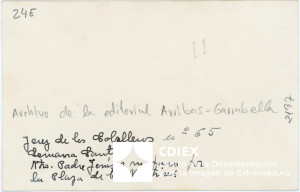 24E
II
Archivo de la editorial Arribas-Garrabella
2497
Jerez de los Caballeros nº 65
Semana Santa
Ntro. Padre Jesús
la Plaza de
CDIEX
Documentación
Imagen de Extremadura